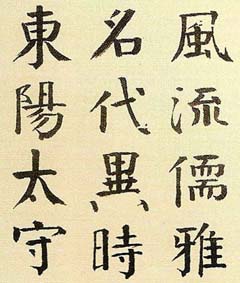 風流儒雅
名代異時
東陽太守